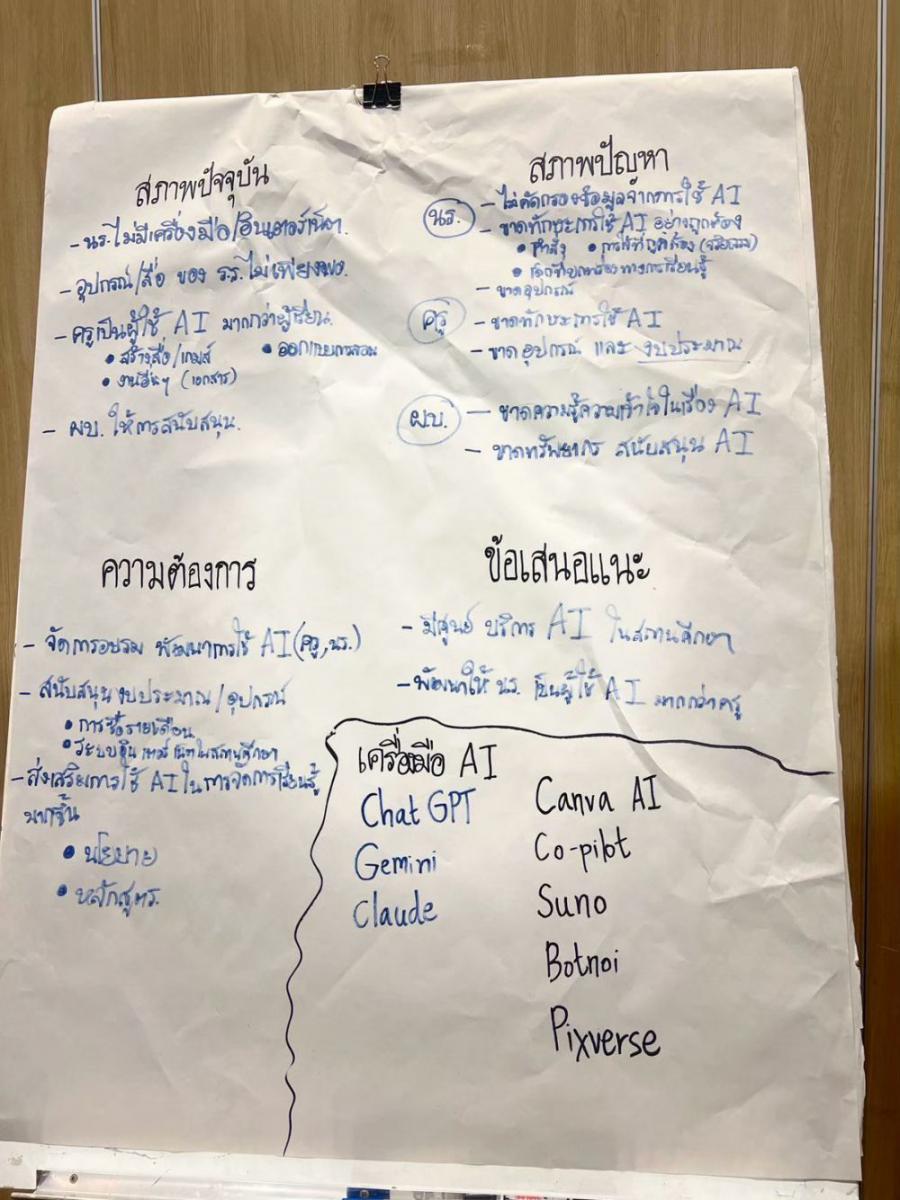 สภาพปัจจุบัน
- นร. ไม่มีเครื่องมือ/อินเตอร์เน็ต
- อุปกรณ์/สื่อ ของ รร. ไม่เพียงพอ.
- ครูเป็นผู้ใช้ AI มากกว่าผู้เรียน.
• สร้างสื่อ/เกมส์ • ออกแบบการสอน
• งานอื่นๆ (เอกสาร)
- ผบ. ให้การสนับสนุน.
สภาพปัญหา
นร. - ไม่คัดกรองข้อมูลจากการใช้ AI
- ขาดทักษะการใช้ AI อย่างถูกต้อง
• คำสั่ง • การใช้ที่ถูกต้อง (จริยธรรม)
• เด็กที่บกพร่องทางการเรียนรู้
- ขาดอุปกรณ์
ครู - ขาดทักษะการใช้ AI
- ขาดอุปกรณ์ และ งบประมาณ
ผบ. - ขาดความรู้ความเข้าใจในเรื่อง AI
- ขาดทรัพยากร สนับสนุน AI
ความต้องการ
- จัดการอบรม พัฒนาการใช้ AI (ครู, นร.)
- สนับสนุนงบประมาณ/อุปกรณ์
• การซื้อรายเดือน
• ระบบอินเทอร์เน็ตในสถานศึกษา
- ส่งเสริมการใช้ AI ในการจัดการเรียนรู้
มากขึ้น
• นโยบาย
• หลักสูตร.
ข้อเสนอแนะ
- มีศูนย์ บริการ AI ในสถานศึกษา
- พัฒนาให้ นร. เป็นผู้ใช้ AI มากกว่าครู
เครื่องมือ AI
Chat GPT
Gemini
Claude
Canva AI
Co-pilot
Suno
Botnoi
Pixverse